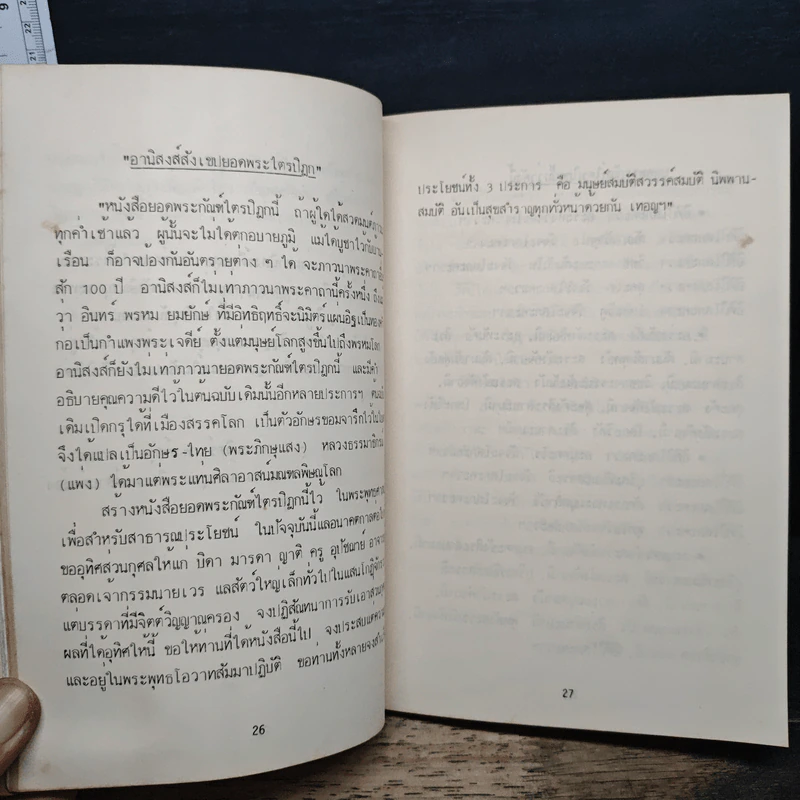 "อานิสงส์สังเขปยอดพระไตรปิฎก"
"หนังสือยอดพระกัณฑ์ไตรปิฎกนี้ ถ้าผู้ใดได้สวดมนต์
ทุกค่ำเช้าแล้ว ผู้นั้นจะไม่ได้ตกอบายภูมิ แม้ได้บูชาไว้กับบ้าน
เรือน ก็อาจป้องกันอันตรายต่าง ๆ ได้ จะภาวนาพระคาถา
สัก 100 ปี อานิสงส์ก็ไม่เท่าภาวนาพระคาถานี้ครั้งหนึ่ง ถึง
วา อินทร์ พรหม ยมยักษ์ ที่มีอิทธิฤทธิ์จะนิมิตร์แผ่นอิฐเป็น
ก่อเป็นกำแพงพระเจดีย์ ตั้งแต่มนุษย์โลกสูงขึ้นไปถึงพรหมโลก
อานิสงส์ก็ยังไม่เท่าภาวนายอดพระกัณฑ์ไตรปิฎกนี้ และมี
อธิบายคุณความดีไว้ในต้นฉบับเดิมนั้นอีกหลายประการฯ
เดิมเปิดกรุได้ที่เมืองสรรคโลก เป็นตัวอักษรขอมจารึกไว้
จึงได้แปลเป็นอักษร-ไทย (พระภิกษุแสง) หลวงธรรมาธิกรณ์
(แพ่ง) ได้มาแต่พระแท่นศิลาอาสน์มณฑลพิษณุโลก
สร้างหนังสือยอดพระกัณฑ์ไตรปิฎกนี้ไว้ ในพระพุทธ
เพื่อสำหรับสาธารณประโยชน์ ในปัจจุบันนี้แลอนาคตกาล
ขออุทิศส่วนกุศลให้แก่ บิดา มารดา ญาติ ครู อุปัชฌาย์
ตลอดเจ้ากรรมนายเวร แลสัตว์ใหญ่เล็กทั่วไปในแสนโกฏิ
แต่บรรดาที่มีจิตต์วิญญาณครอง จงปฏิสัณฑนาการรับเอา
ผลที่ได้อุทิศให้นี้ ขอให้ท่านที่ได้หนังสือนี้ไป จงประสบแต่
และอยู่ในพระพุทธโอวาทสัมมาปฏิบัติ ขอท่านทั้งหลาย
26
ประโยชน์ทั้ง 3 ประการ คือ มนุษย์สมบัติสวรรค์สมบัติ นิพพาน-
สมบัติ อันเป็นสุขสำราญทุกทั่วหน้าด้วยกัน เทอญฯ"
27